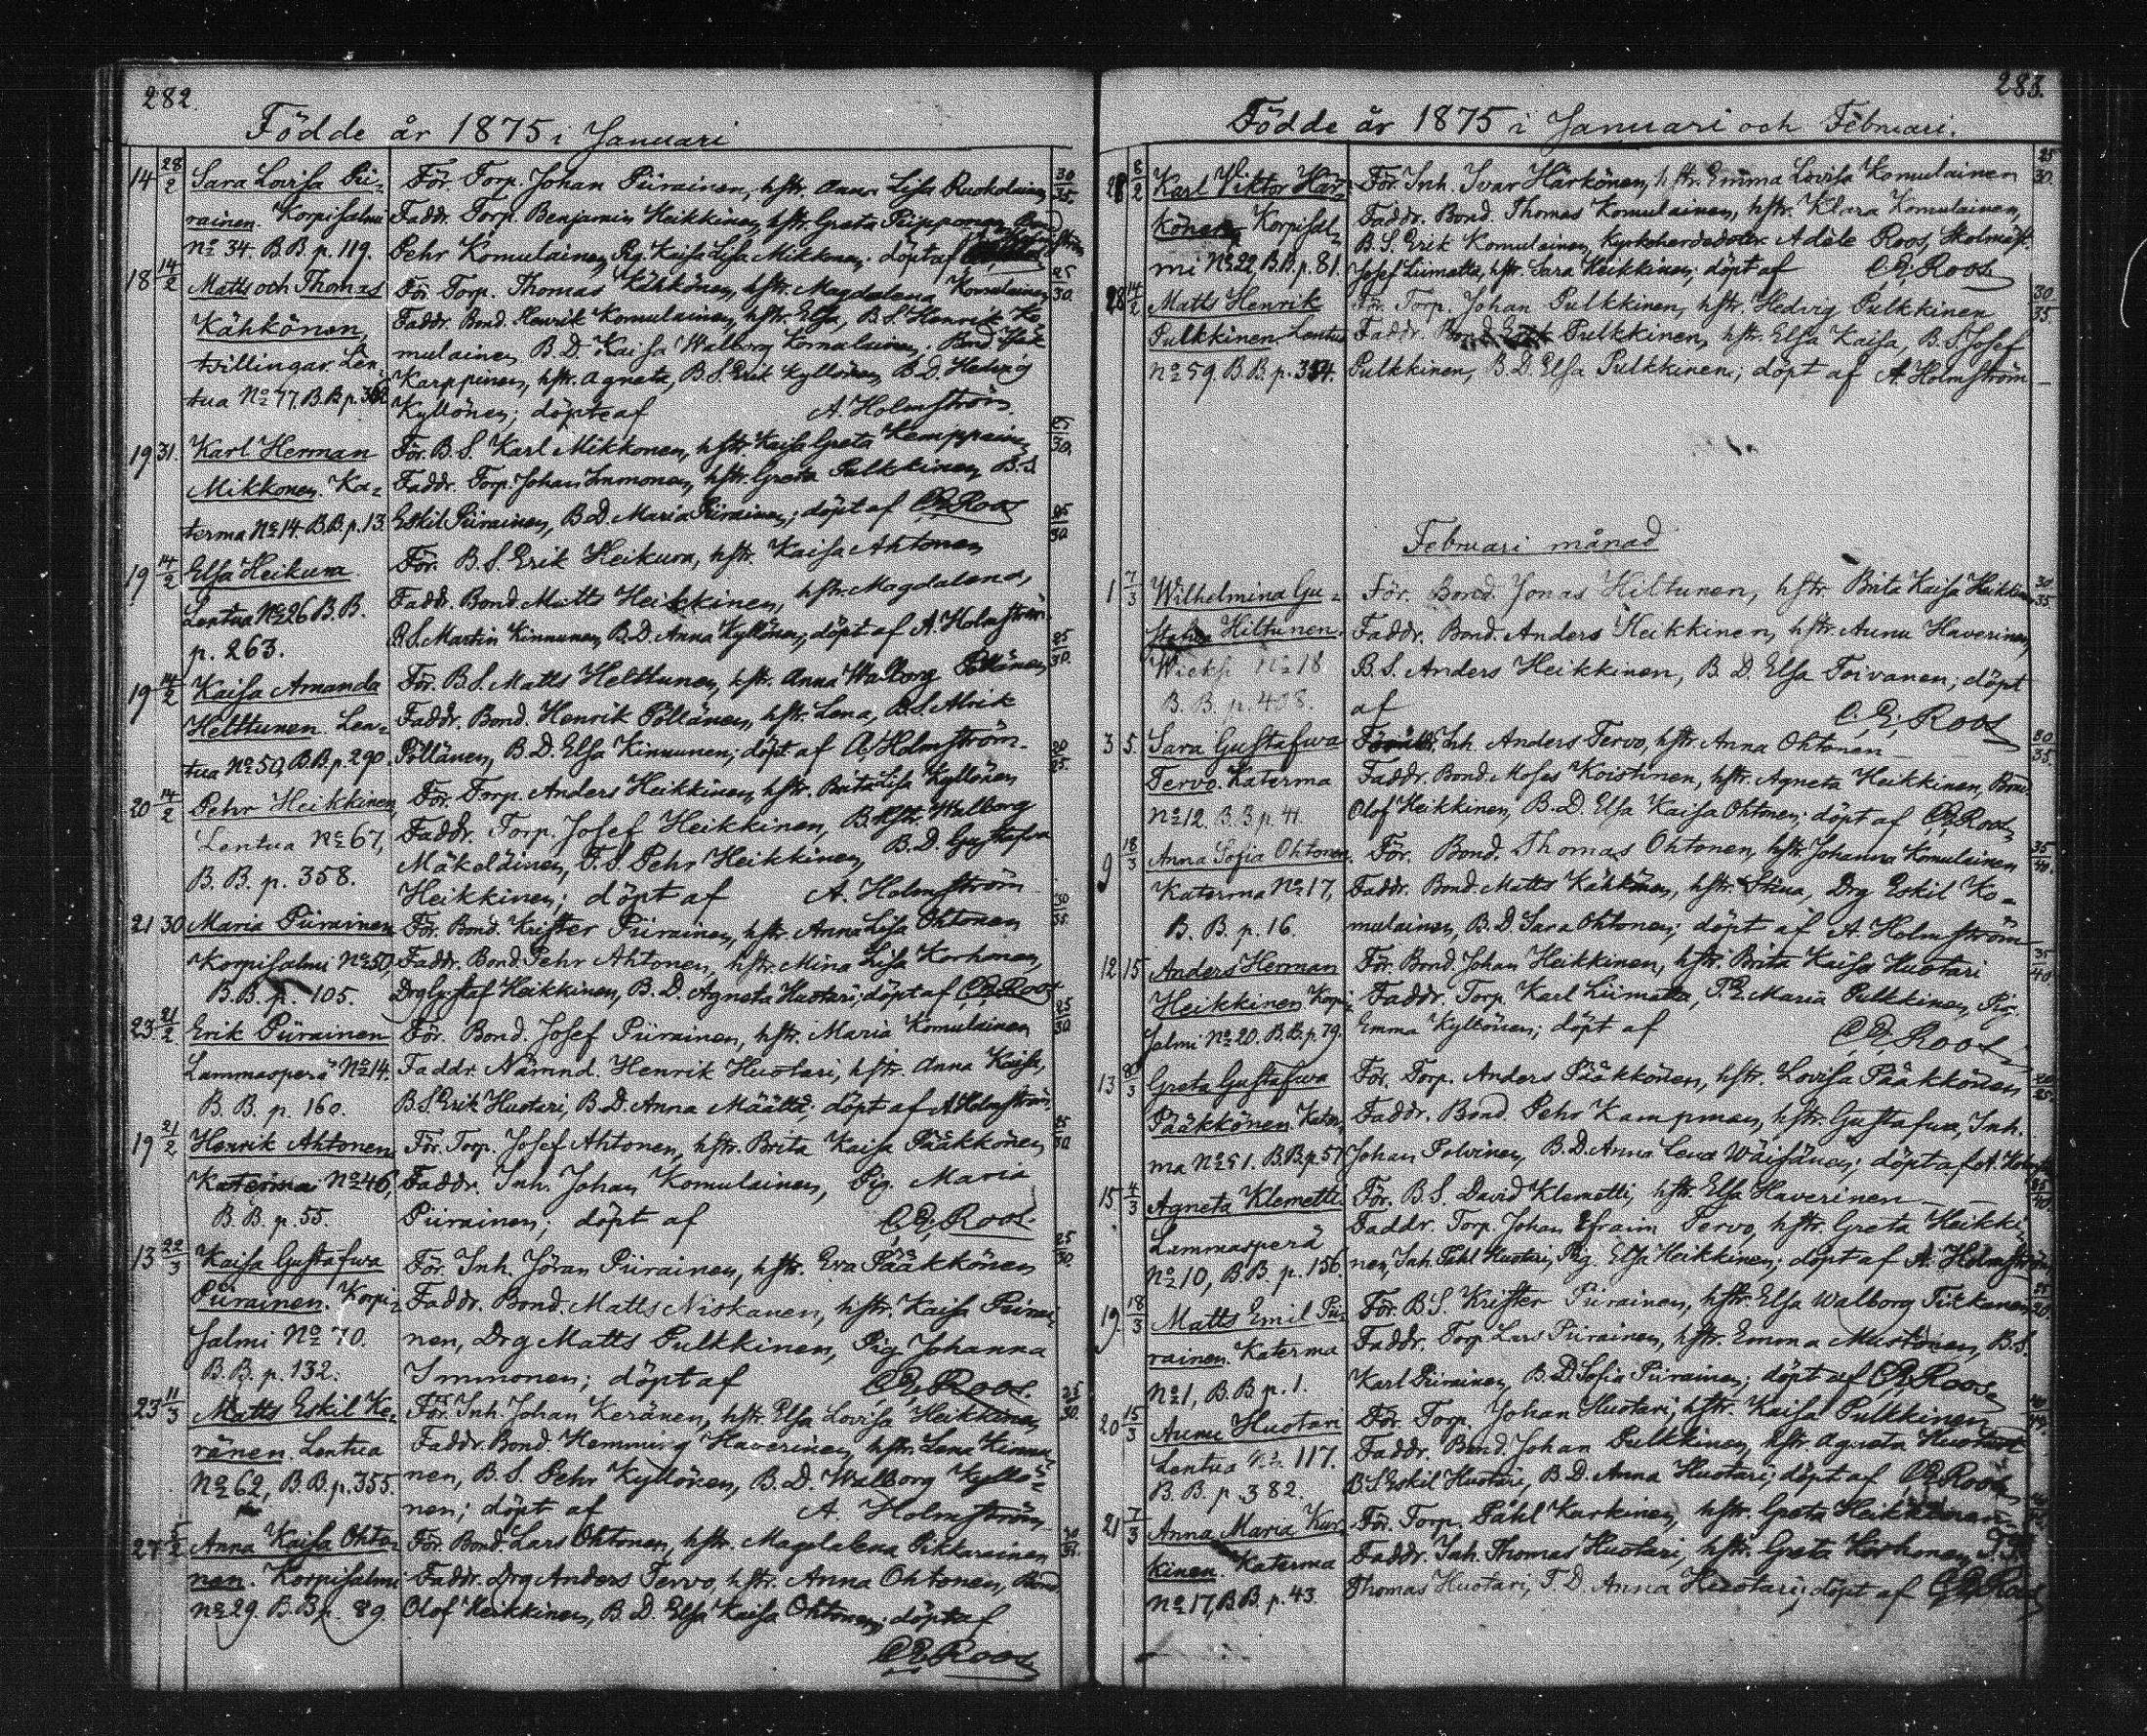 282.
Födde år 1875 i Januari
14 28/2 Sara Lovisa Pii- För. Torp. Johan Piirainen, hstr. Anna Lisa Ruokolainen 30/35.
rainen. Korpisalmi Faddr. Torp. Benjamin Heikkinen, hstr. Greta Piipponen, Bond
No 34. B.B. p. 119. Pehr Komulainen, Pig. Kaisa Lisa Mikkonen; döpt af
18 14/2 Matts och Thomas För. Torp. Thomas Kähkönen, hstr. Magdalena Komulainen 25/30.
Kähkönen, Faddr. Bond. Henrik Komulainen, hstr. Elsa, B.S. Henrik Ko-
tvillingar Len- mulainen B.D. Kaisa Walborg Komulainen. Bond. Isak
tua No 77. B.B. p. Karppinen, hstr. Agneta, B.S. Erik Kyllönen, B.D. Hedvig
Kyllönen; döpte af A. Holmström.
19 31. Karl Herman För. B.S. Karl Mikkonen, hstr. Kaisa Greta Kemppainen 25/30.
Mikkonen. Ka- Faddr. Torp. Johan Immonen, hstr. Greta Pulkkinen, B.S.
terma No 14. B.B. p. 13. Eskil Piirainen, B.D. Maria Piirainen; döpt af C.E. Roos
19 14/2 Elsa Heikura För. B.S. Erik Heikura, hstr. Kaisa Ahtonen 25/30
Lentua No 26 B.B. Faddr. Bond. Matts Heikkinen, hstr. Magdalena,
p. 263. B.S. Martin Kinnunen, B.D. Anna Kyllönen; döpt af A. Holmström.
19 14/2 Kaisa Amanda För. B.S. Matts Helttunen, hstr. Anna Walborg Pöllänen 25/30.
Helttunen. Len- Faddr. Bond. Henrik Pöllänen, hstr. Lena, B.S. Alrik
tua No 50, B.B. p. 290. Pöllänen, B.D. Elsa Kinnunen; döpt af A. Holmström.
20 14/2 Pehr Heikkinen För. Torp. Anders Heikkinen, hstr. Brita Lisa Kyllönen 20/25.
Lentua No 67, Faddr. Torp. Josef Heikkinen, hstr. Walborg
B.B. p. 358. Mäkeläinen, T.S. Pehr Heikkinen, B.D. Gustafva
Heikkinen; döpt af A. Holmström
21 30 Maria Piirainen För. Bond. Krister Piirainen, hstr. Anna Lisa Ohtonen 30/35.
Korpisalmi No 50, Faddr. Bond. Pehr Ahtonen, hstr. Mina Lisa Korhonen,
B.B. p. 105. Drg Gustaf Heikkinen, B.D. Agneta Huotari; döpt af C.E. Roos
23 21/2 Erik Piirainen För. Bond. Josef Piirainen, hstr. Maria Komulainen 25/30
Lammasperä No 14. Faddr. Nämnd. Henrik Huotari, hstr. Anna Kaisa,
B.B. p. 160. B.S. Erik Huotari, B.D. Anna Määttä; döpt af A. Holmström.
19 21/2 Henrik Ahtonen För. Torp. Josef Ahtonen, hstr. Brita Kaisa Pääkkönen 25/30
Katerma No 46, Faddr. Inh. Johan Komulainen, Pig. Maria
B.B. p. 55. Piirainen; döpt af C.E. Roos.
13 22/3 Kaisa Gustafva För. Inh. Jöran Piirainen, hstr. Eva Pääkkönen 25/30.
Piirainen. Korpi- Faddr. Bond. Matts Niskanen, hstr. Kaisa Piirai-
salmi No 70. nen, Drg Matts Pulkkinen, Pig. Johanna
B.B. p. 132. Immonen; döpt af C.E. Roos.
23 11/3 Matts Eskil Ke- För. Inh. Johan Keränen, hstr. Elsa Lovisa Heikkinen, 25/30.
ränen. Lentua Faddr. Bond. Hemming Haverinen, hstr. Lena Kinnu-
No 62, B.B. p. 355. nen, B.S. Pehr Kyllönen, B.D. Walborg Kyllö-
nen; döpt af A. Holmström
27 /2 Anna Kaisa Ohto- För. Bond. Lars Ohtonen, hstr. Magdalena Pikkarainen
nen. Korpisalmi Faddr. Drg Anders Tervo, hstr. Anna Ohtonen, Bond
No 29. B.B. p. 89 Olof Heikkinen, B.D. Elsa Kaisa Ohtonen; döpt af
C.E. Roos
283.
Födde år 1875 i Januari och Februari.
28 8/2 Karl Viktor Här- För. Inh. Ivar Härkönen, hstr. Emma Lovisa Komulainen 25/30.
könen Korpisal- Faddr. Bond. Thomas Komulainen, hstr. Klara Komulainen,
mi No 22, B.B. p. 81. B.S. Erik Komulainen, Kyrkoherdedotr. Adèle Roos, Skolmäst.
Josef Liimatta, hstr. Sara Heikkinen; döpt af C.E. Roos
28 14/2 Matts Henrik För. Torp. Johan Pulkkinen, hstr. Hedvig Pulkkinen 30/35.
Pulkkinen. Lentua Faddr. Bond. Pulkkinen, hstr. Elsa Kaisa, B.S. Josef
No 59. B.B. p. Pulkkinen, B.D. Elsa Pulkkinen; döpt af A. Holmström
Februari månad
1 7/3 Wilhelmina Gu- För. Bond. Jonas Hiltunen, hstr. Brita Kaisa Heikkinen 30/35
stafva Hiltunen. Faddr. Bond. Anders Heikkinen, hstr. Aunu Haverinen,
Wieki No 18 B.S. Anders Heikkinen, B.D. Elsa Toivanen; döpt
B.B. p. 408. af C.E. Roos
3 5. Sara Gustafva Inh. Anders Tervo, hstr. Anna Ohtonen 30/35.
Tervo. Katerma Faddr. Bond. Moses Koistinen, hstr. Agneta Heikkinen, Bond
No 12. B.B. p. 41. Olof Heikkinen, B.D. Elsa Kaisa Ohtonen; döpt af C.E. Roos
9 18/3 Anna Sofia Ohtonen. För. Bond. Thomas Ohtonen, hstr. Johanna Komulainen 35/40.
Katerma No 17, Faddr. Bond. Matts Kähkönen, hstr. Stina, Drg Eskil Ko-
B.B. p. 16. mulainen, B.D. Sara Ohtonen; döpt af A. Holmström
12 15 Anders Herman För. Bond. Johan Heikkinen, hstr. Brita Kaisa Huotari 35/40.
Heikkinen Korpi- Faddr. Torp. Karl Liimatta, Maria Pulkkinen, Pig.
salmi No 20. B.B. p. 79. Emma Kyllönen; döpt af C.E. Roos.
13 /3 Greta Gustafva För. Torp. Anders Pääkkönen, hstr. Lovisa Pääkkönen 20/25.
Pääkkönen Kater- Faddr. Bond Pehr Kampman, hstr. Gustafva, Inh.
ma No 51. B.B. p. 57 Johan Polvinen, B.D. Anna Lena Wäisänen; döpt af A.
15 4/3 Agneta Klemetti För. B.S. David Klemetti, hstr. Elsa Haverinen
Lammasperä Faddr. Torp. Johan Efraim Tervo, hstr. Greta Heikki-
No 10, B.B. p. 156. nen, Inh. Pahl Huotari, Pig. Elsa Heikkinen; döpt af A. Holmström
19. 18/3 Matts Emil Pii- För. B.S. Krister Piirainen, hstr. Elsa Walborg Tikkanen
rainen. Katerma Faddr. Torp. Lars Piirainen, hstr. Emma Mustonen, B.S.
No 1, B.B. p. 1. Karl Piirainen, B.D. Sofia Piirainen; döpt af C.E. Roos
20 15/3 Aunu Huotari För. Torp. Johan Huotari, hstr. Kaisa Pulkkinen
Lentua No 117. Faddr. Bond. Johan Pulkkinen, hstr. Agneta Huotari
B.B. p. 382. B.S. Eskil Huotari, B.D. Anna Huotari; döpt af C.E. Roos
21 7/3 Anna Maria Kur- För. Torp. Pahl Kurkinen, hstr. Greta Heikkinen
kinen. Katerma Faddr. Inh. Thomas Huotari, hstr. Greta Korhonen,
No 17, B.B. p. 43. Thomas Huotari, T.D. Anna Huotari; döpt af C.E. Roos